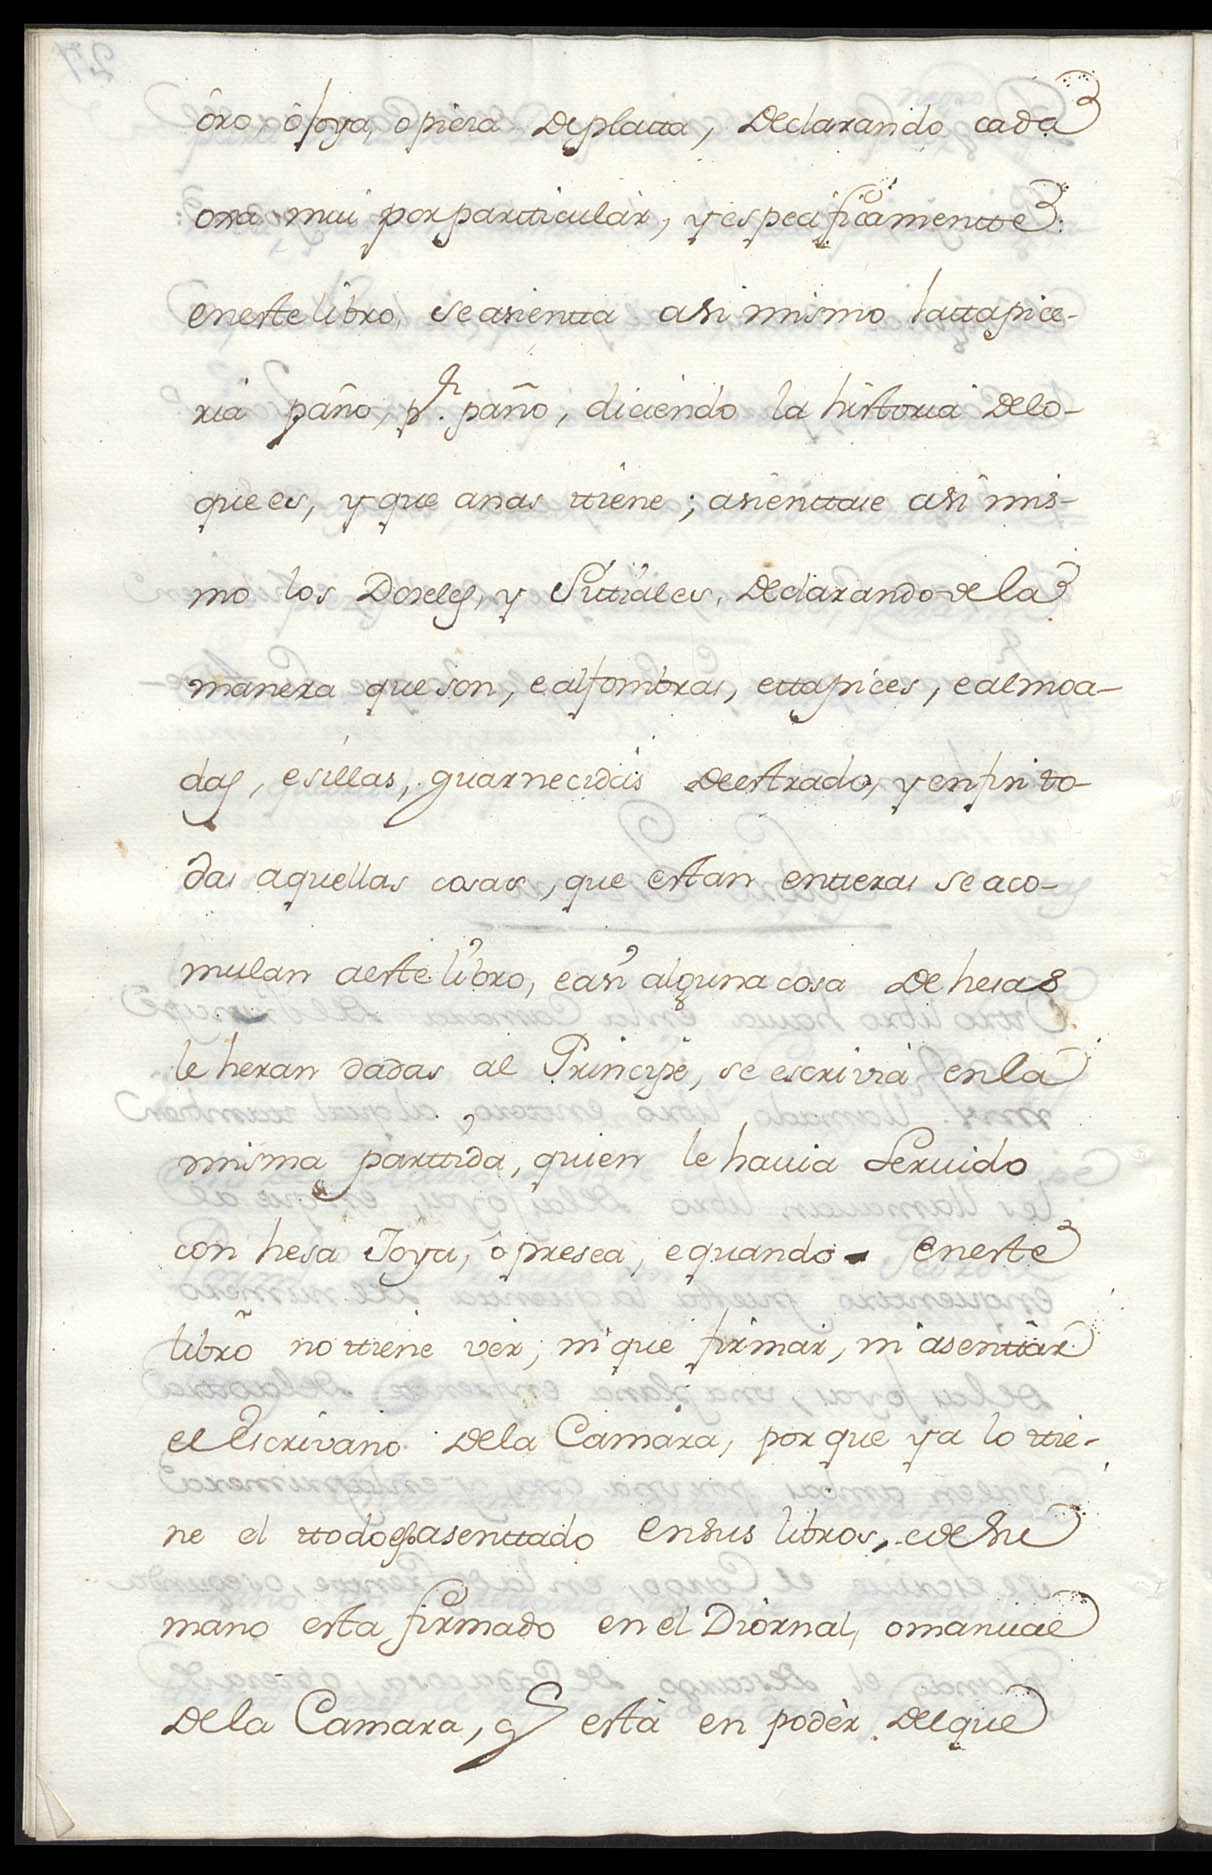 òro, ò Joya, o pieza deplatta, declarando cada
ossa mui por partticular, y especificamentte
eneste libro, se asientta assi mismo lattapice-
ria paño, pr. paño, diciendo la historia delo-
que es, y que anas ttiene; asienttase assi mis-
mo los Doseles, y Sittiales, declarando dela
manera que son, e alfombras, ettapices, e almoa-
das, e sillas, guarnecidas de estrado, y enfin to-
das aquellas cosas, que estan entteras se aco-
mulan aeste libro, easi alguna cosa de hesas
le heran dadas al Principe, se escrivia en la
misma parttida, quien le havia Servido
con hesa Joya, ò presea, e quando eneste
libro no ttiene ver, ni que firmar, ni asenttar
el Escrivano dela Camara, por que ya lo ttie-
ne el ttodo asenttado en sus libros, e de su
mano esta firmado en el Diornal, o manual
dela Camara, q està en podèr del que